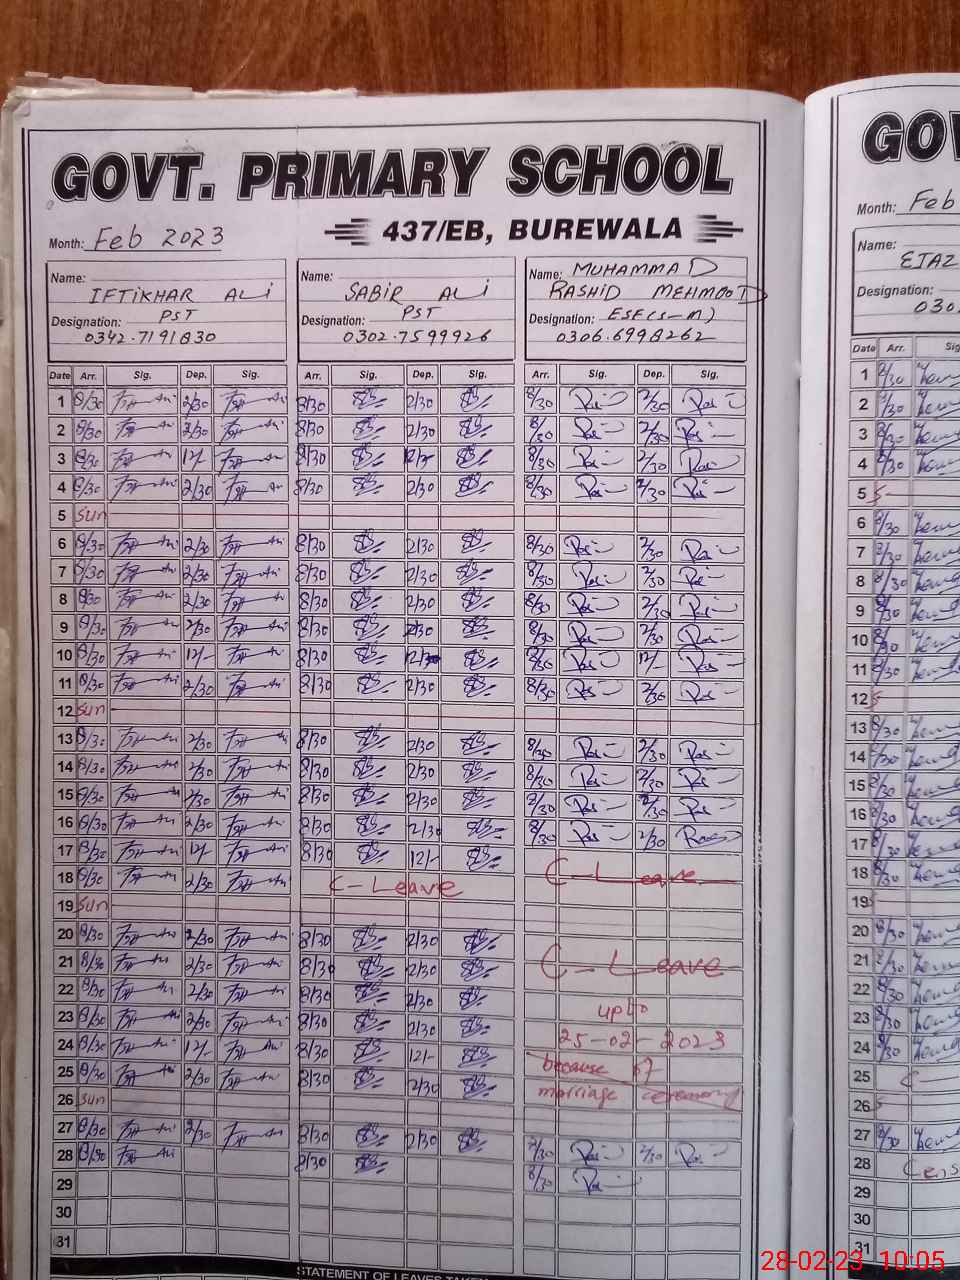 GOVT. PRIMARY SCHOOL
437/EB, BUREWALA
Month: Feb 2023
Name: IFTIKHAR ALI
Designation: PST
0342-7191830
Name: SABIR ALI
Designation: PST
0302-7599926
Name: MUHAMMAD
RASHID MEHMOOD
Designation: ESE(S-M)
0306-6998262
Date Arr. Sig. Dep. Sig. Arr. Sig. Dep. Sig. Arr. Sig. Dep. Sig.
1 8/30 2/30 8/30 2/30 8/30 2/30
2 8/30 2/30 8/30 2/30 8/30 2/30
3 8/30 12/- 8/30 8/30 2/30
4 8/30 2/30 8/30 2/30 8/30 2/30
5 Sun
6 8/30 2/30 8/30 2/30 8/30 2/30
7 8/30 2/30 8/30 2/30 8/30 2/30
8 8/30 2/30 8/30 2/30 8/30 2/30
9 8/30 2/30 8/30 2/30 8/30 2/30
10 8/30 12/- 8/30 8/30 12/-
11 8/30 2/30 8/30 2/30 8/30 2/30
12 Sun
13 8/30 2/30 8/30 2/30 8/30 2/30
14 8/30 2/30 8/30 2/30 8/30 2/30
15 8/30 2/30 8/30 2/30 8/30 2/30
16 8/30 2/30 8/30 2/30 8/30 2/30
17 8/30 12/- 8/30 12/- C-Leave
18 8/30 2/30 C-Leave
19 Sun
20 8/30 2/30 8/30 2/30
21 8/30 2/30 8/30 2/30 C-Leave
22 8/30 2/30 8/30 2/30 upto
23 8/30 2/30 8/30 2/30 25-02-2023
24 8/30 12/- 8/30 12/- because of
25 8/30 2/30 8/30 2/30 marriage ceremony
26 Sun
27 8/30 2/30 8/30 2/30 8/30 2/30
28 8/30 8/30 8/30
29
30
31
STATEMENT OF LEAVES TAKEN
Month: Feb
Name: EJAZ
Designation:
Date Arr.
1 8/30
2 8/30
3 8/30
4 8/30
5 S
6 8/30
7 8/30
8 8/30
9 8/30
10 8/30
11 8/30
12 S
13 8/30
14 8/30
15 8/30
16 8/30
17 8/30
18 8/30
19 S
20 8/30
21 8/30
22 8/30
23 8/30
24 8/30
25 C-
26 S
27 8/30
28
29
30
31
28-02-23 10:05